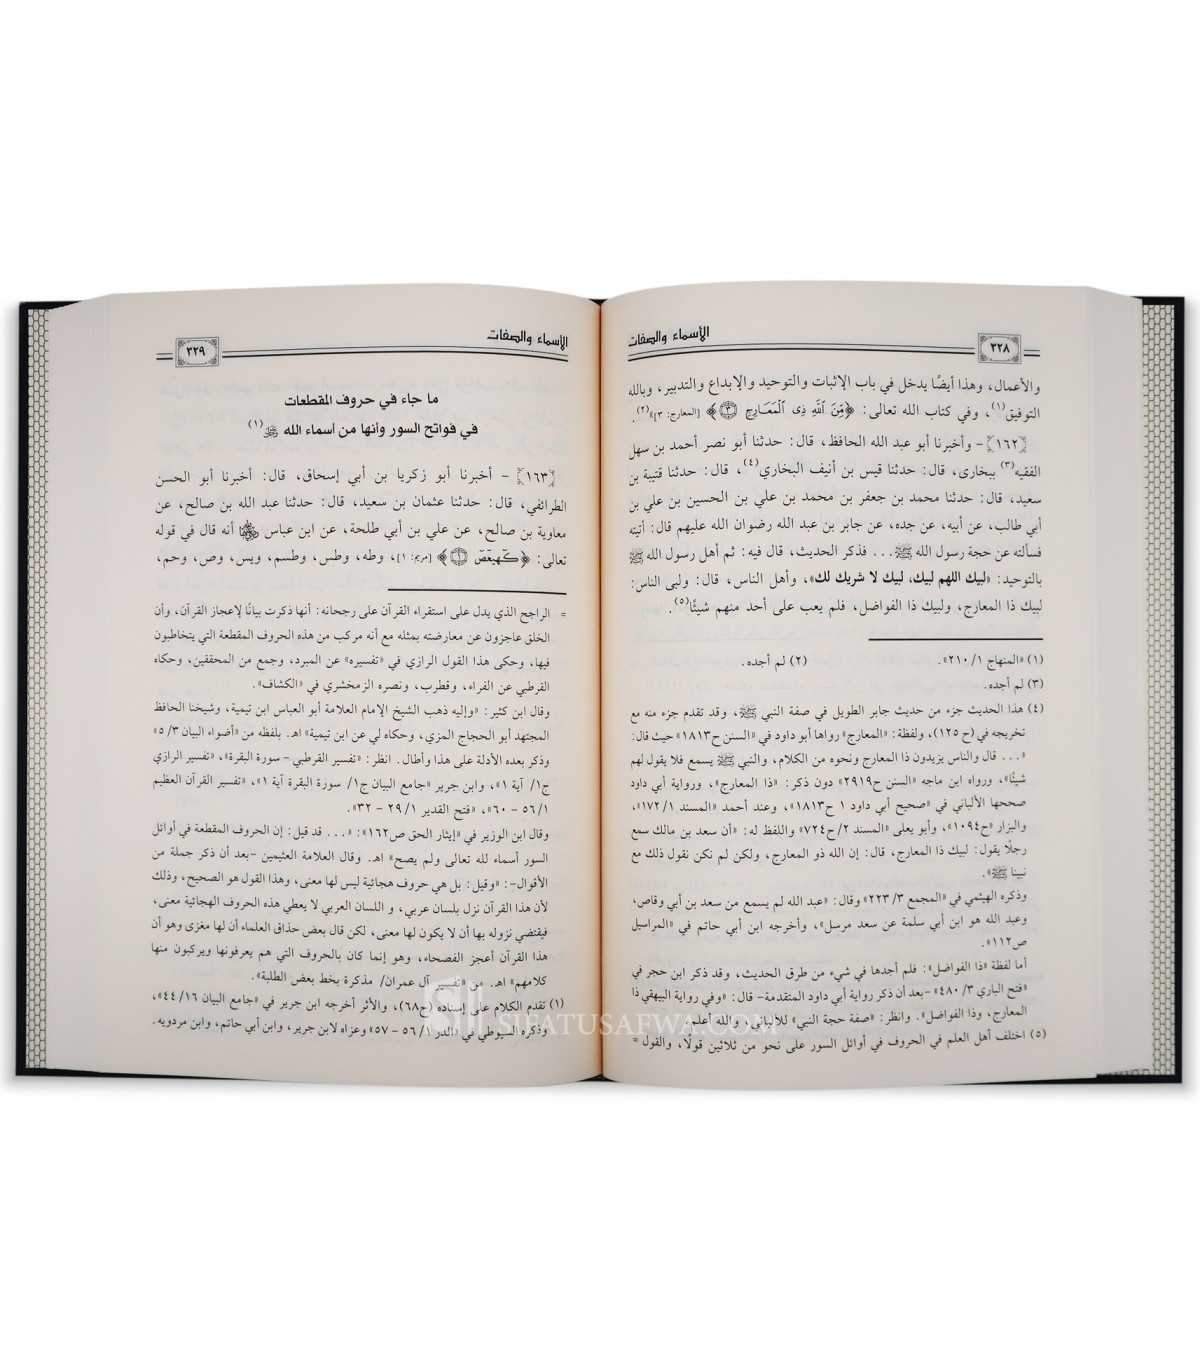 الأسماء والصفات
٣٢٨
والأعمال، وهذا أيضًا يدخل في باب الإثبات والتوحيد والإبداع والتدبير، وبالله
التوفيق(١)، وفي كتاب الله تعالى: ﴿مِّنَ ٱللَّهِ ذِى ٱلْمَعَارِجِ ٣﴾ [المعارج: ٣](٢).
﴿١٦٢﴾ - وأخبرنا أبو عبد الله الحافظ، قال: حدثنا أبو نصر أحمد بن سهل
الفقيه(٣) ببخارى، قال: حدثنا قيس بن أنيف البخاري(٤)، قال: حدثنا قتيبة بن
سعيد، قال: حدثنا محمد بن جعفر بن محمد بن علي بن الحسين بن علي بن
أبي طالب، عن أبيه، عن جده، عن جابر بن عبد الله رضوان الله عليهم قال: أتيته
فسألته عن حجة رسول الله ﷺ... فذكر الحديث، قال فيه: ثم أهل رسول الله ﷺ
بالتوحيد: «لبيك اللهم لبيك، لبيك لا شريك لك»، وأهل الناس، قال: ولبى الناس:
لبيك ذا المعارج، ولبيك ذا الفواضل، فلم يعب على أحد منهم شيئًا(٥).
(١) «المنهاج ١/ ٢١٠». (٢) لم أجده.
(٣) لم أجده.
(٤) هذا الحديث جزء من حديث جابر الطويل في صفة النبي ﷺ، وقد تقدم جزء منه مع
تخريجه في (ح ١٢٥)، ولفظة: «المعارج» رواها أبو داود في «السنن ح١٨١٣» حيث قال:
«... قال والناس يزيدون ذا المعارج ونحوه من الكلام، والنبي ﷺ يسمع فلا يقول لهم
شيئًا»، ورواه ابن ماجه «السنن ح٢٩١٩» دون ذكر: «ذا المعارج»، ورواية أبي داود
صححها الألباني في «صحيح أبي داود ١ ح١٨١٣»، وعند أحمد «المسند ١/ ١٧٢»،
والبزار «ح١٠٩٤»، وأبو يعلى «المسند ٢/ ح٧٢٤» واللفظ له: «أن سعد بن مالك سمع
رجلًا يقول: لبيك ذا المعارج، قال: إن الله ذو المعارج، ولكن لم نكن نقول ذلك مع
نبينا ﷺ».
وذكره الهيثمي في «المجمع ٣/ ٢٢٣» وقال: «عبد الله لم يسمع من سعد بن أبي وقاص،
وعبد الله هو ابن أبي سلمة عن سعد مرسل»، وأخرجه ابن أبي حاتم في «المراسيل
ص١١٢».
أما لفظة «ذا الفواضل»: فلم أجدها في شيء من طرق الحديث، وقد ذكر ابن حجر في
«فتح الباري ٣/ ٤٨٠» -بعد أن ذكر رواية أبي داود المتقدمة- قال: «وفي رواية البيهقي ذا
المعارج، وذا الفواضل». وانظر: «صفة حجة النبي» للألباني، والله أعلم.
(٥) اختلف أهل العلم في الحروف في أوائل السور على نحو من ثلاثين قولًا، والقول =
الأسماء والصفات
٣٢٩
ما جاء في حروف المقطعات
في فواتح السور وأنها من أسماء الله ﷻ(١)
﴿١٦٣﴾ - أخبرنا أبو زكريا بن أبي إسحاق، قال: أخبرنا أبو الحسن
الطرائفي، قال: حدثنا عثمان بن سعيد، قال: حدثنا عبد الله بن صالح، عن
معاوية بن صالح، عن علي بن أبي طلحة، عن ابن عباس ﵄ أنه قال في قوله
تعالى: ﴿كٓهيعٓصٓ ١﴾ [مريم: ١]، وطه، وطس، وطسم، ويس، وص، وحم،
= الراجح الذي يدل على استقراء القرآن على رجحانه: أنها ذكرت بيانًا لإعجاز القرآن، وأن
الخلق عاجزون عن معارضته بمثله مع أنه مركب من هذه الحروف المقطعة التي يتخاطبون
فيها، وحكى هذا القول الرازي في «تفسيره» عن المبرد، وجمع من المحققين، وحكاه
القرطبي عن الفراء، وقطرب، ونصره الزمخشري في «الكشاف».
وقال ابن كثير: «وإليه ذهب الشيخ الإمام العلامة أبو العباس ابن تيمية، وشيخنا الحافظ
المجتهد أبو الحجاج المزي، وحكاه لي عن ابن تيمية» اهـ. بلفظه من «أضواء البيان ٣/ ٥»
وذكر بعده الأدلة على هذا وأطال. انظر: «تفسير القرطبي - سورة البقرة»، «تفسير الرازي
ج١/ آية ١»، وابن جرير «جامع البيان ج١/ سورة البقرة آية ١»، «تفسير القرآن العظيم
١/ ٥٦ - ٦٠»، «فتح القدير ١/ ٢٩ - ٣٢».
وقال ابن الوزير في «إيثار الحق ص١٦٢»: «... قد قيل: إن الحروف المقطعة في أوائل
السور أسماء لله تعالى ولم يصح» اهـ. وقال العلامة العثيمين -بعد أن ذكر جملة من
الأقوال-: «وقيل: بل هي حروف هجائية ليس لها معنى، وهذا القول هو الصحيح، وذلك
لأن هذا القرآن نزل بلسان عربي، و اللسان العربي لا يعطي هذه الحروف الهجائية معنى،
فيقتضي نزوله بها أن لا يكون لها معنى، لكن قال بعض حذاق العلماء أن لها مغزى وهو أن
هذا القرآن أعجز الفصحاء، وهو إنما كان بالحروف التي هم يعرفونها ويركبون منها
كلامهم» اهـ. من «تفسير آل عمران/ مذكرة بخط بعض الطلبة».
(١) تقدم الكلام على إسناده (ح٦٨)، والأثر أخرجه ابن جرير في «جامع البيان ١٦/ ٤٤»،
وذكره السيوطي في «الدر ١/ ٥٦ - ٥٧» وعزاه لابن جرير، وابن أبي حاتم، وابن مردويه.
SIFATUSAFWA.COM